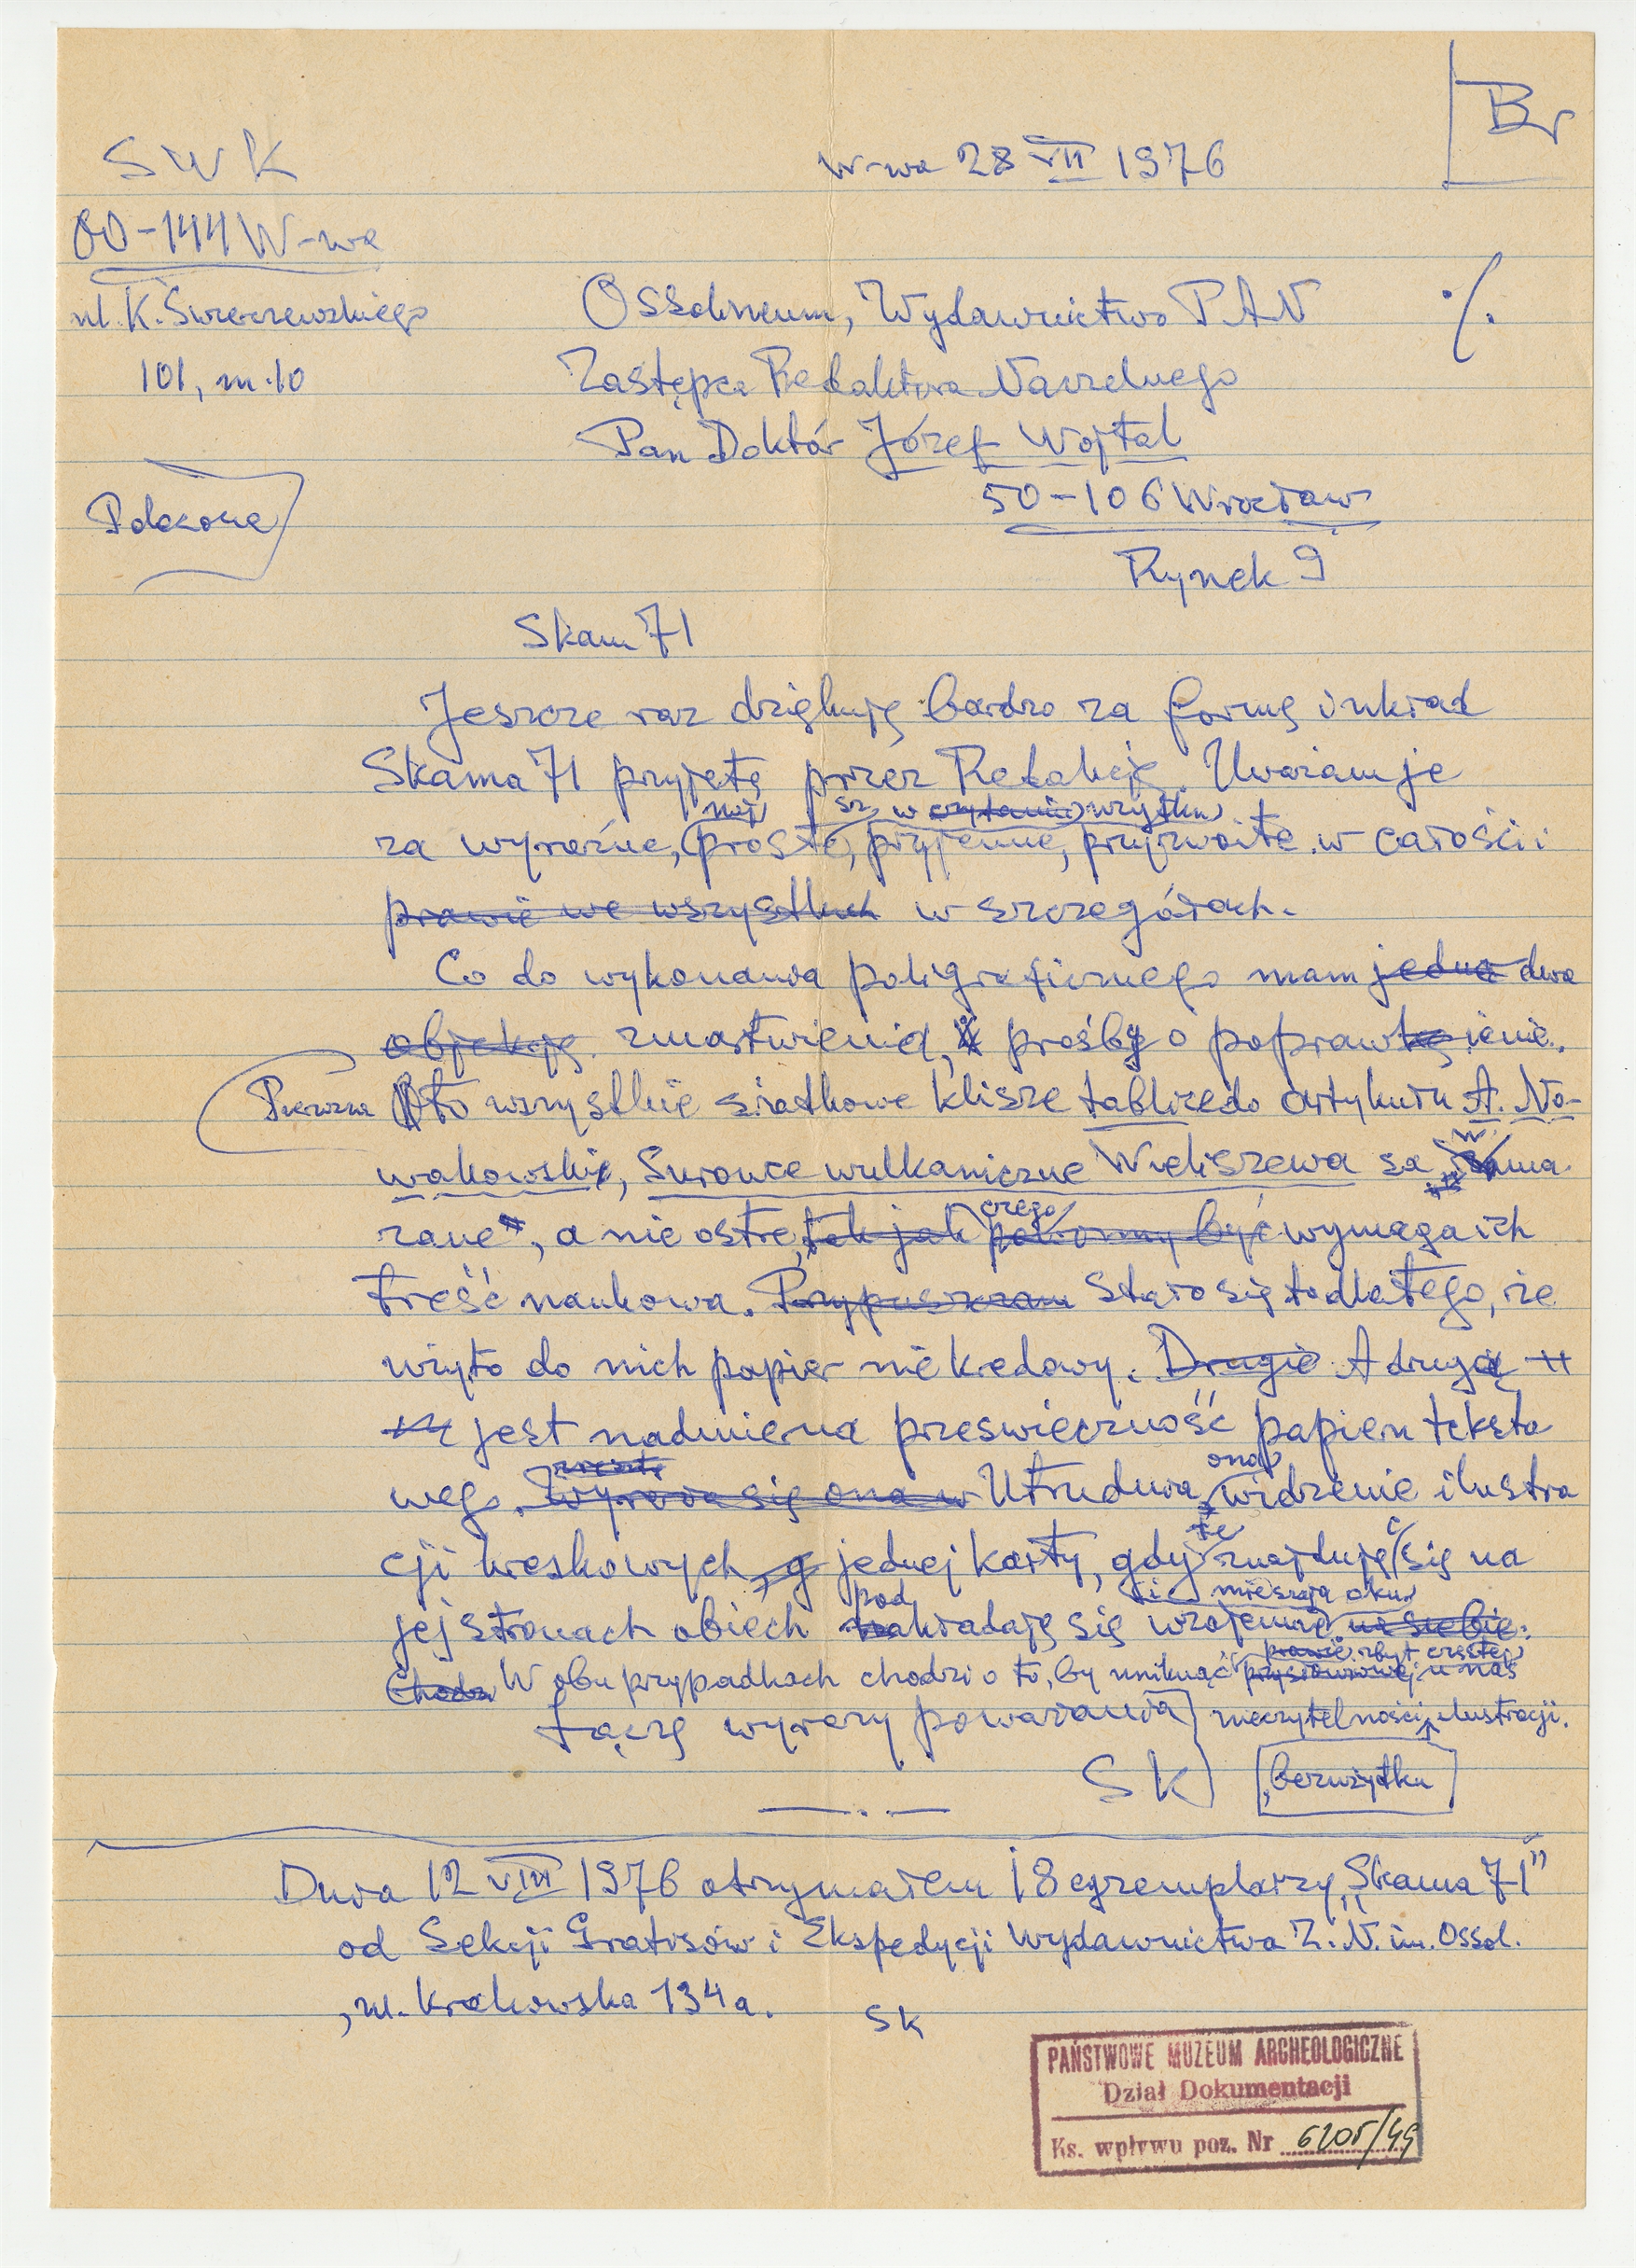 Br
SWK
W-wa 28 VII 1976
00-144 W-wa
ul. K. Świerczewskiego
101, m. 10
Ossolineum, Wydawnictwo PAN
·/.
Zastępca Redaktora Naczelnego
Pan Doktór Józef Wojtal
50-106 Wrocław
Polecone
Rynek 9
Skam 71
Jeszcze raz dziękuję bardzo za formę i układ
Skama 71 przyjętą przez Redakcję. Uważam je
naj sz w czytaniu użytku
za wyraźne, proste, przyjemne, przyzwoite w całości i
prawie we wszystkich w szczegółach.
Co do wykonania poligraficznego mam jedno dwa
objekcję zmartwienia, prośby o poprawienie.
Pierwsza to wszystkie siatkowe klisze tablic do artykułu A. No-
wakowski, Surowce wulkaniczne Wieliszewa są zama-
czego
zane, a nie ostre, tak jak powinny być wymaga ich
treść naukowa. Przypuszczam Stało się to dlatego, że
użyto do nich papier nie kredowy. Drugie A drugą
jest nadmierna prześwieczność papieru teksto
ona
wego. Wyraża się ona w Utrudnia widzenie ilustra
te
cji kreskowych, jednej karty, gdy znajdują się na
pod i mieszają oku
jej stronach obiech nakładają się wzajemnie na siebie.
prawie zbyt częstej
Chodzi W obu przypadkach chodzi o to, by uniknąć przysłowiowej u nas
Łączę wyrazy poważania nieczytelności ilustracji.
SK
bezużytku
Dnia 12 VIII 1976 otrzymałem 18 egzemplarzy „Skama 71”
od Sekcji Gratisów i Ekspedycji Wydawnictwa Z. N. im. Ossol.
, ul. Krakowska 134a.
SK
PAŃSTWOWE MUZEUM ARCHEOLOGICZNE
Dział Dokumentacji
Ks. wpływu poz. Nr 6205/49